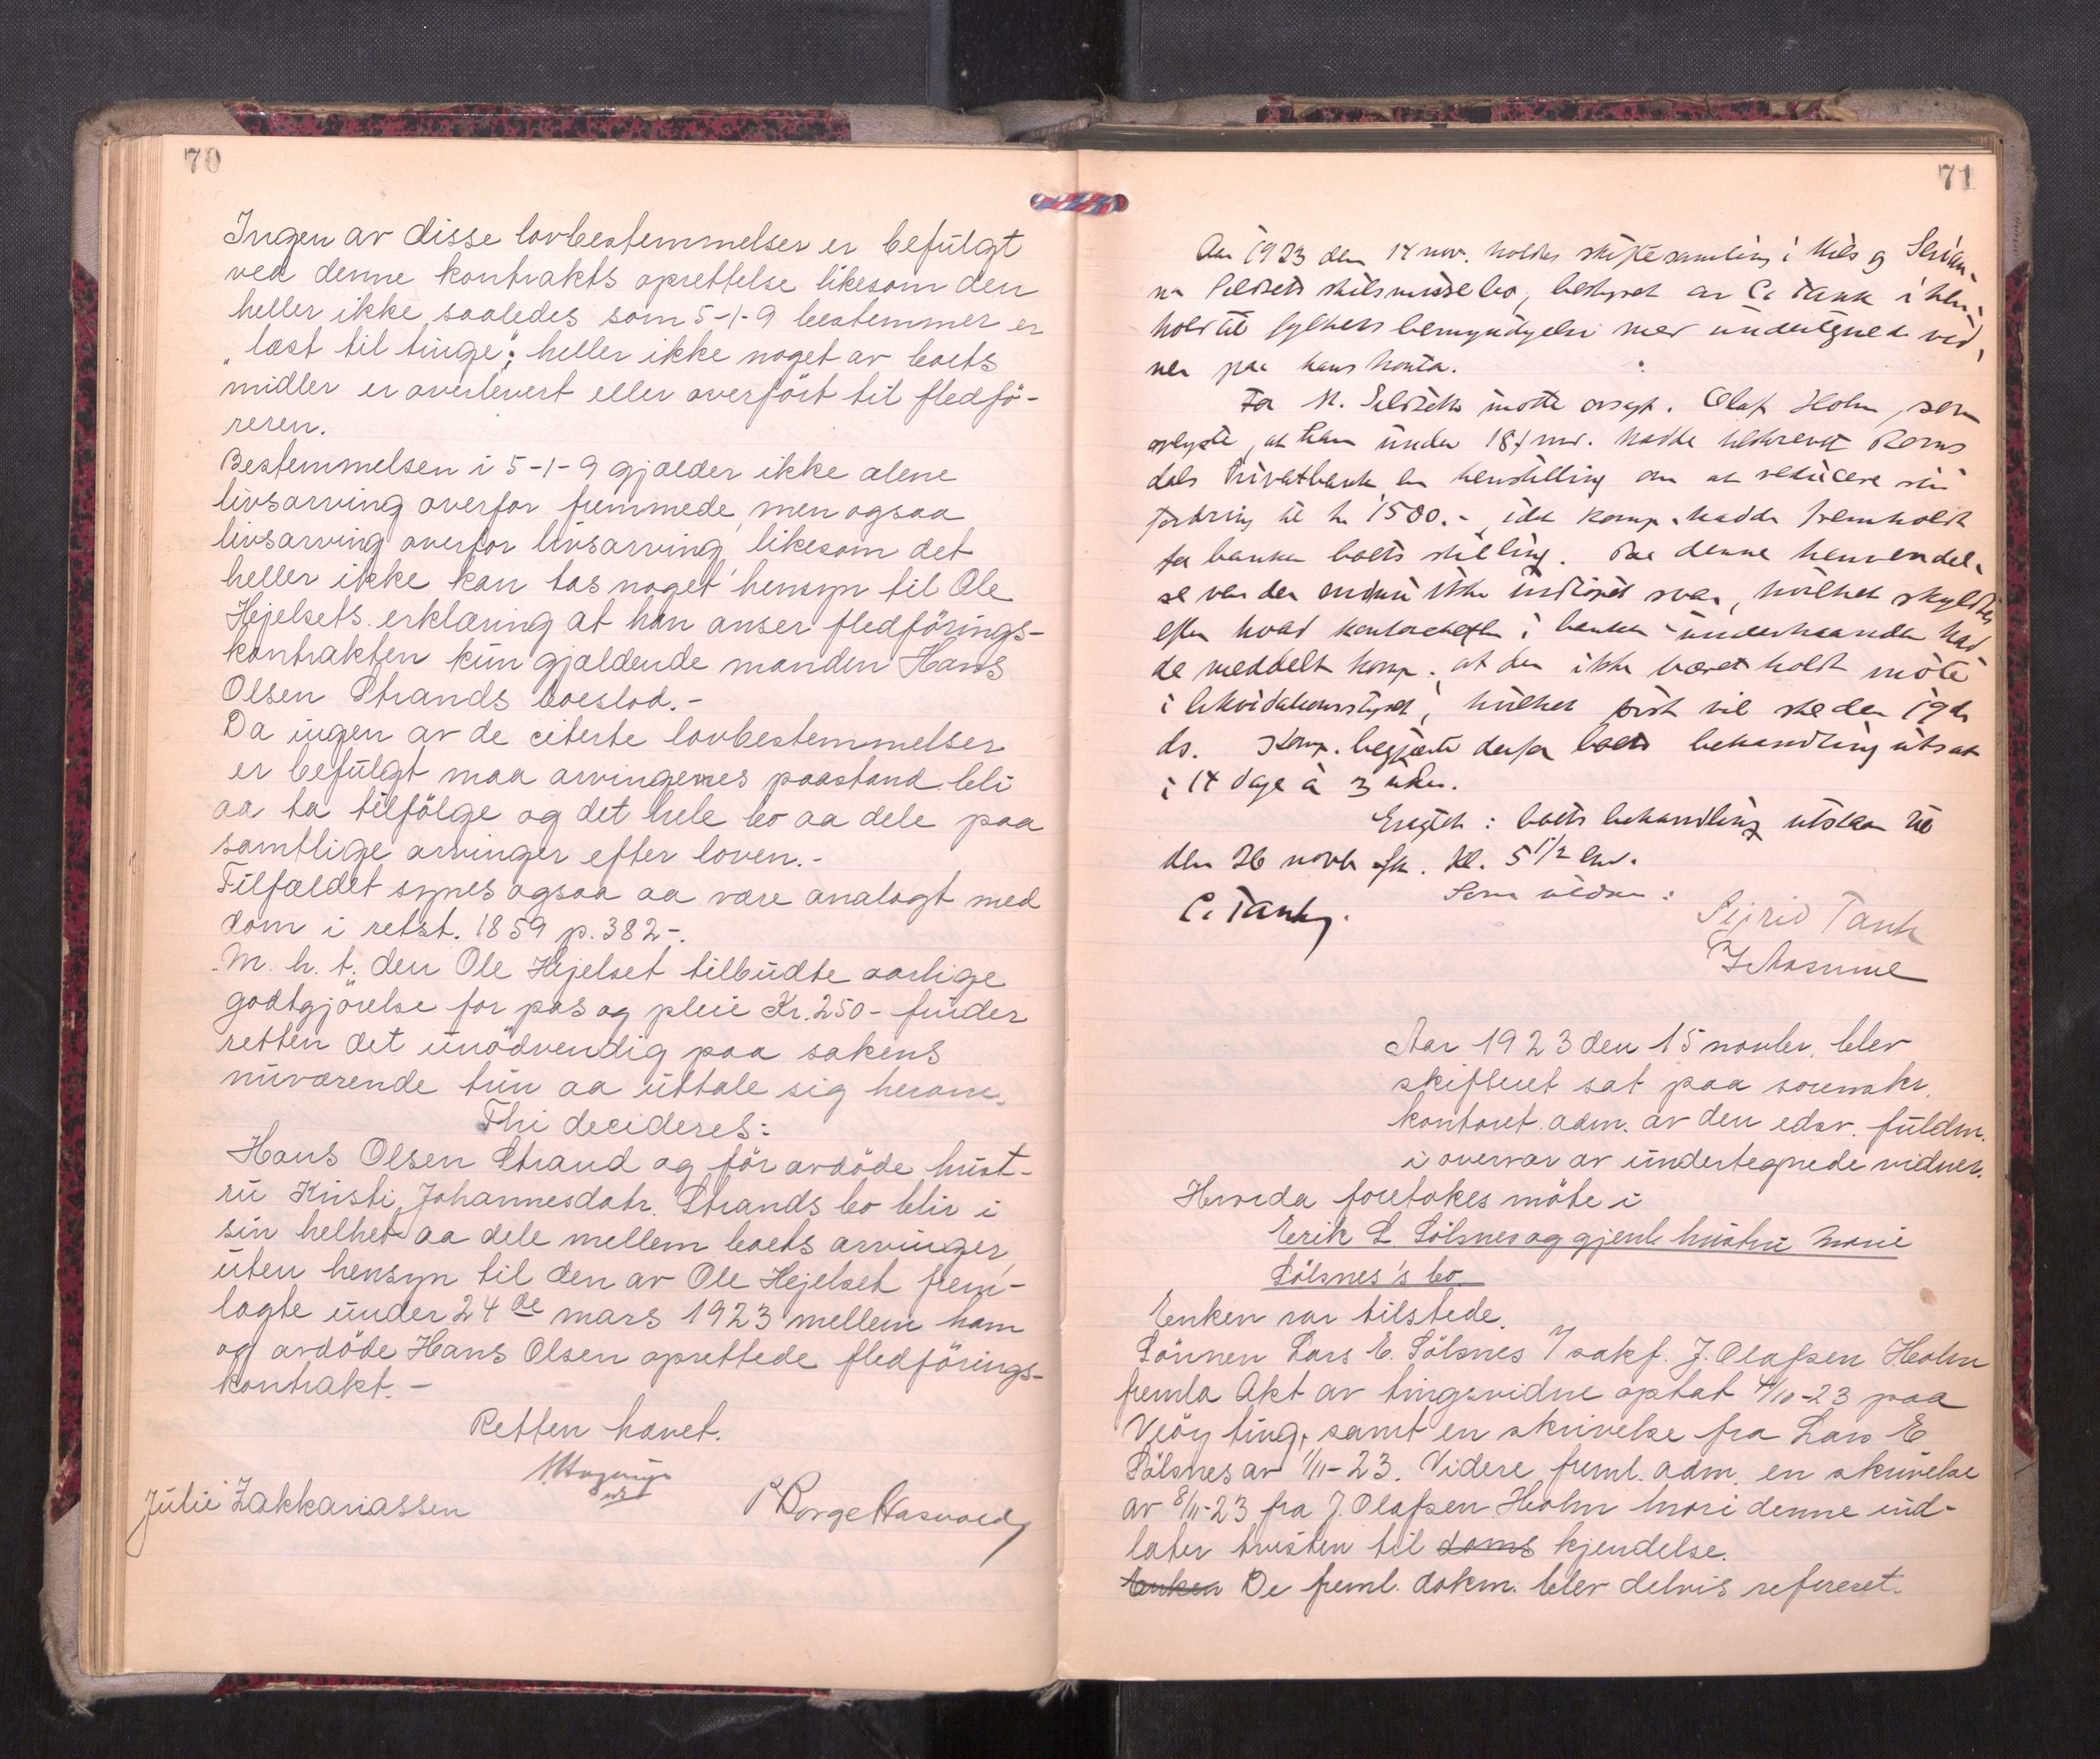 70
Ingen av disse lovbestemmelser er befulgt
ved denne kontrakts oprettelse likesom den
heller ikke saaledes som 5-1-9 bestemmer er
"læst til tinge", heller ikke noget av boets
midler er overlevert eller overfört til fledfö-
reren.
Bestemmelsen i 5-1-9 gjælder ikke alene
livsarving overfor fremmede, men ogsaa
livsarving overfor livsarving, likesom det
heller ikke kan tas noget hensyn til Ole
Hjelsets erklæring at han anser fledförings-
kontrakten kun gjældende manden Hans
Olsen Strands boeslod.-
Da ingen av de citerte lovbestemmelser
er befulgt maa arvingernes paastand bli
aa ta tilfölge og det hele bo aa dele paa
samtlige arvinger efter loven.-
Tilfældet synes ogsaa aa være analogt med
dom i retst. 1859 p. 382-.
M. h. t. den Ole Hjelset tilbudte aarlige
godtgjörelse for pas og pleie Kr. 250- finder
retten det unödvendig paa sakens
nuværende trin aa uttale sig herom.
Thi decideres:
Hans Olsen Strand og för avdöde hust-
ru Kristi Johannesdatr. Strands bo blir i
sin helhet aa dele mellem boets arvinger,
uten hensyn til den av Ole Hjelset frem-
lagte under 24de mars 1923 mellem ham
og avdöde Hans Olsen oprettede fledförings-
kontrakt.-
Retten hævet.
Julie Zakkariassen
P Borge Hasvold
71
Aar 1923 den 14 nov. holdes skiftesamling i Nils og
skilsmissebo, bestyret av C. Tank i hen-
hold til fylkets bemyndigelse med undertegnede vid-
ner paa hans kontor.
For N. motte orsagf. Olaf Holm, som
oplyste, at han under 18/ nov. hadde tilskrevet Roms
dals Privatbank en henstilling om at reducere sin
fordring til kr 1500.-, idet komp. hadde fremholdt
for banken boets stilling. Paa denne henvendel-
se var der endnu ikke indlöpet svar, hvilket skyldtes
efter hvad kontorchefen i banken underhaanden had
de meddelt komp. at der ikke været holdt möte
i likvidationsstyret, hvilket först vil ske den 19de
ds. Komp. begjærte derfor boets behandling utsat
i 14 dage à 3 uker.
Eragtet: boets behandling utstaar til
den 26 novbr. kl. 5 1/2 em.
C. Tank.
Som vidner:
Sigrid Tank
Aar 1923 den 15 novbr. blev
skifteret sat paa sorenskr.
kontoret adm. av den edsv. fuldm.
i overvær av undertegnede vidner.
Hvorda foretokes möte i
Erik L Sölsnes og gjenl. hustru Marie
Sölsnes's bo.
Enken var tilstede.
Sönnen Lars E. Sölsnes v/ sakf. J. Olafsen Holm
fremla Akt av tingsvidne optat 4/10-23 paa
Veöy ting, samt en skrivelse fra Lars E
Sölsnes av 1/11-23. Videre freml. adm. en skrivelse
av 8/11-23 fra J. Olafsen Holm hvori denne ind-
later tvisten til doms kjendelse.
Enken De freml. dokm. blev delvis referert.